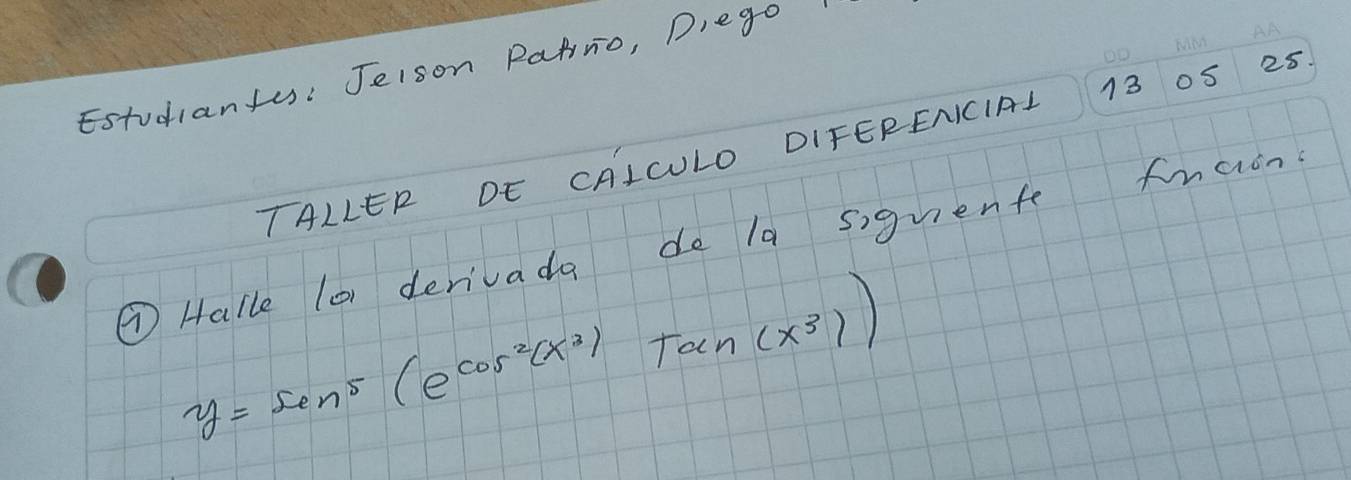 Estudiantes: Jeison Patiño, Diego
DD MM AA
13 05 25.
TALLER DE CÁLCULO DIFERENCIAL
① Halle la derivada de la siguiente función:
y = sen⁵ (e^cos²(x³) Tan (x³))